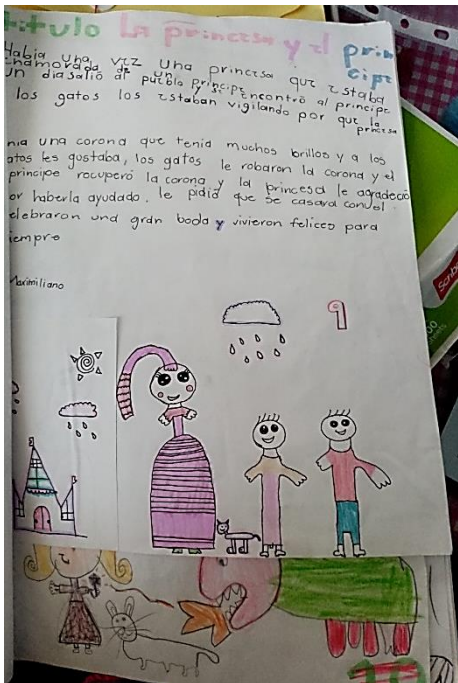 titulo La princesa y el prin
cipe
Habia una vez una princesa que estaba
enamorada de un principe
un dia salió al pueblo se encontró al principe
los gatos los estaban vigilando por que la
princesa
nia una corona que tenia muchos brillos y a los
atos les gustaba, los gatos le robaron la corona y el
principe recuperó la corona y la princesa le agradeció
or haberla ayudado. le pidió que se casara con el
elebraron una gran boda y vivieron felices para
iempre
Maximiliano
9
Scribe
00
10